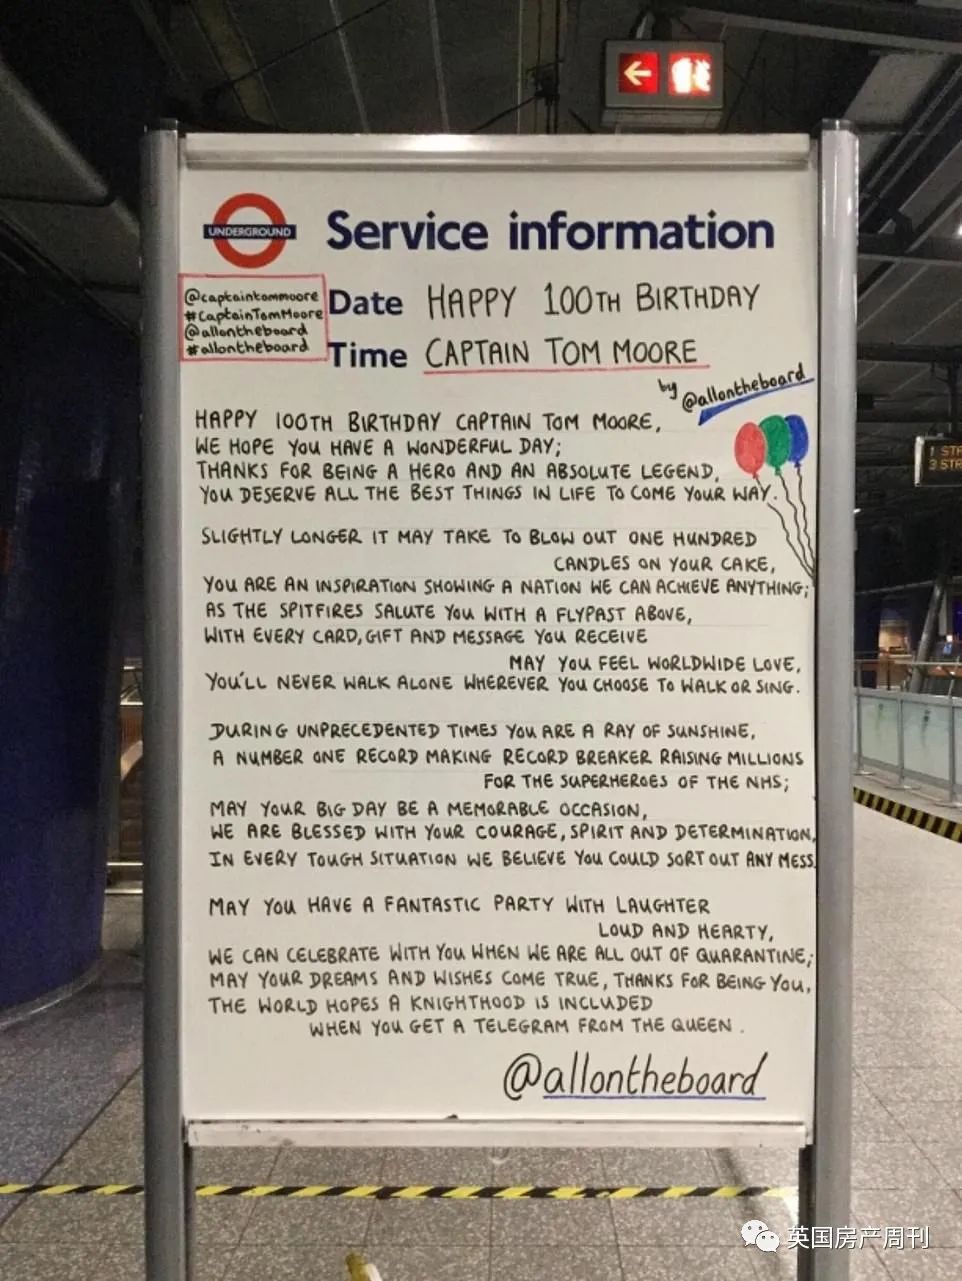 UNDERGROUND
Service information
@captaintommoore
#CaptainTomMoore
@allontheboard
#allontheboard
Date HAPPY 100TH BIRTHDAY
Time CAPTAIN TOM MOORE
by @allontheboard
HAPPY 100TH BIRTHDAY CAPTAIN TOM MOORE,
WE HOPE YOU HAVE A WONDERFUL DAY;
THANKS FOR BEING A HERO AND AN ABSOLUTE LEGEND,
YOU DESERVE ALL THE BEST THINGS IN LIFE TO COME YOUR WAY.
SLIGHTLY LONGER IT MAY TAKE TO BLOW OUT ONE HUNDRED
CANDLES ON YOUR CAKE,
YOU ARE AN INSPIRATION SHOWING A NATION WE CAN ACHIEVE ANYTHING;
AS THE SPITFIRES SALUTE YOU WITH A FLYPAST ABOVE,
WITH EVERY CARD, GIFT AND MESSAGE YOU RECEIVE
MAY YOU FEEL WORLDWIDE LOVE,
YOU'LL NEVER WALK ALONE WHEREVER YOU CHOOSE TO WALK OR SING.
DURING UNPRECEDENTED TIMES YOU ARE A RAY OF SUNSHINE,
A NUMBER ONE RECORD MAKING RECORD BREAKER RAISING MILLIONS
FOR THE SUPERHEROES OF THE NHS;
MAY YOUR BIG DAY BE A MEMORABLE OCCASION,
WE ARE BLESSED WITH YOUR COURAGE, SPIRIT AND DETERMINATION,
IN EVERY TOUGH SITUATION WE BELIEVE YOU COULD SORT OUT ANY MESS.
MAY YOU HAVE A FANTASTIC PARTY WITH LAUGHTER
LOUD AND HEARTY,
WE CAN CELEBRATE WITH YOU WHEN WE ARE ALL OUT OF QUARANTINE;
MAY YOUR DREAMS AND WISHES COME TRUE, THANKS FOR BEING YOU,
THE WORLD HOPES A KNIGHTHOOD IS INCLUDED
WHEN YOU GET A TELEGRAM FROM THE QUEEN.
@allontheboard
1 STR
3 STR
英国房产周刊